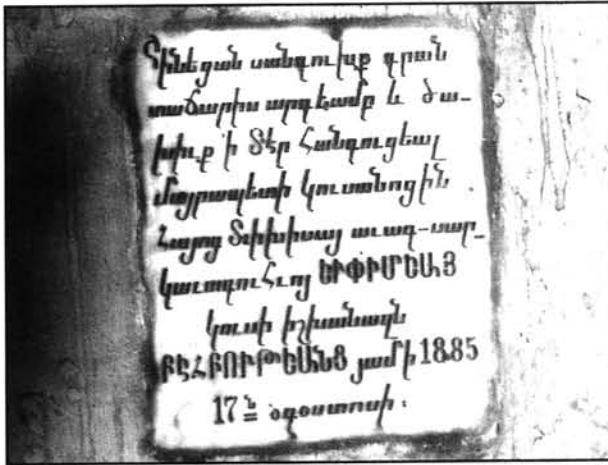 Շինեցան սանդուխք դրան
տաճարիս արդեամբ և ծա-
խիւք ի Տէր Հանգուցեալ
Մայրապետի կուսանոցին
Հայոց Տփխիսայ աւագ-սար-
կաւագուհւոյ ԵՓԻՄԵԱՅ
կուսի իշխանազն
ԲԷՀԲՈՒԹԵԱՆՑ յամի 1885
17 ն օգոստոսի: